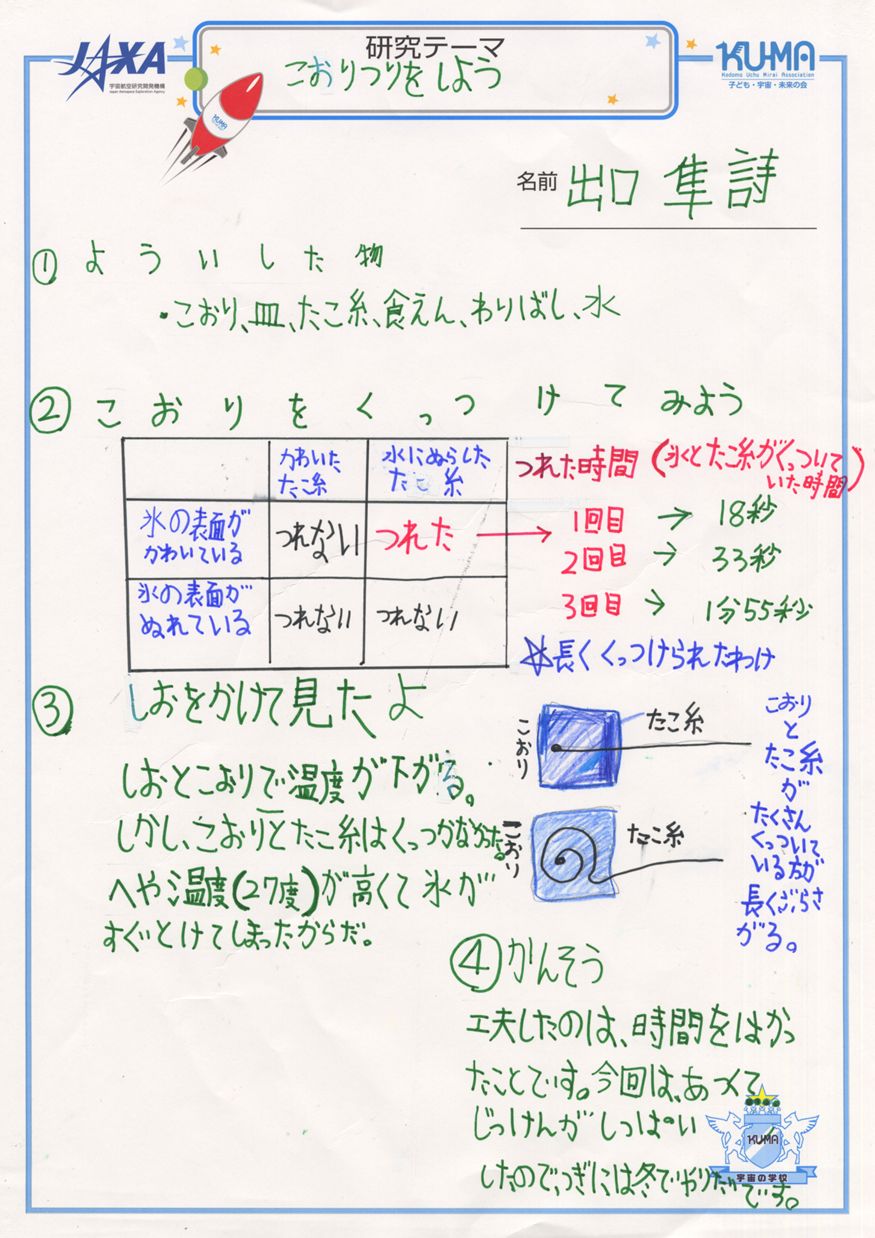 JAXA
宇宙航空研究開発機構
Japan Aerospace Exploration Agency
研究テーマ
こおりつりをしよう
KU-MA
Kodomo Uchu Mirai Association
子ども・宇宙・未来の会
KU-MA
名前 出口 隼詩
① よういした物
・こおり、皿、たこ糸、食えん、わりばし、水
② こおりをくっつけてみよう
かわいた
たこ糸
水にぬらした
たこ糸
氷の表面が
かわいている
つれない
つれた
氷の表面が
ぬれている
つれない
つれない
つれた時間(氷とたこ糸がくっついて
いた時間)
1回目 → 18秒
2回目 → 33秒
3回目 → 1分55秒
☆長くくっつけられたわけ
こおり
たこ糸
こおり
たこ糸
こおり
と
たこ糸
が
たくさん
くっついて
いる方が
長くぶらさ
がる。
③ しおをかけて見たよ
しおとこおりで温度が下がる。
しかし、こおりとたこ糸はくっつかなかった。
へや温度(27度)が高くて氷が
すぐとけてしまったからだ。
④かんそう
工夫したのは、時間をはかっ
たことです。今回は、あつくて
じっけんがしっぱい
したので、つぎには冬でやりたいです。
KU-MA
宇宙の学校